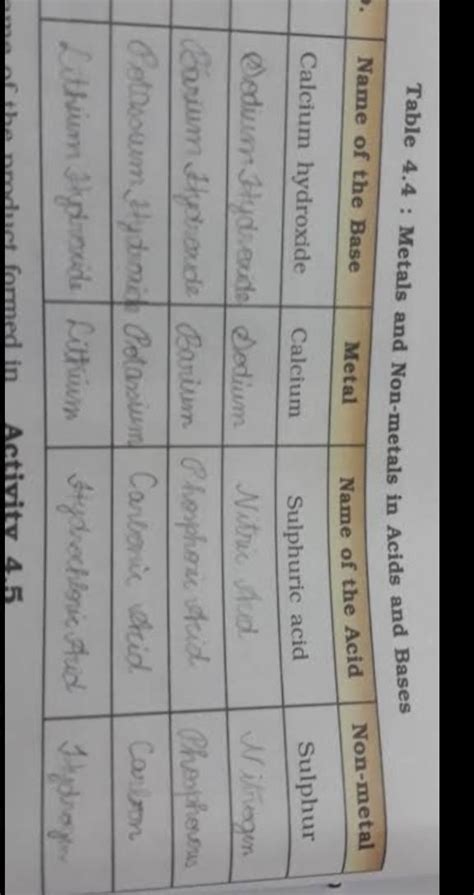 Table 4.4 : Metals and Non-metals in Acids and Bases
Name of the Base Metal Name of the Acid Non-metal
Calcium hydroxide Calcium Sulphuric acid Sulphur
Sodium Hydroxide Sodium Nitric Acid Nitrogen
Barium Hydroxide Barium Phosphoric Acid Phosphorous
Potassium Hydroxide Potassium Carbonic Acid Carbon
Lithium Hydroxide Lithium Hydrochloric Acid Hydrogen
of the product formed in Activity 4.5